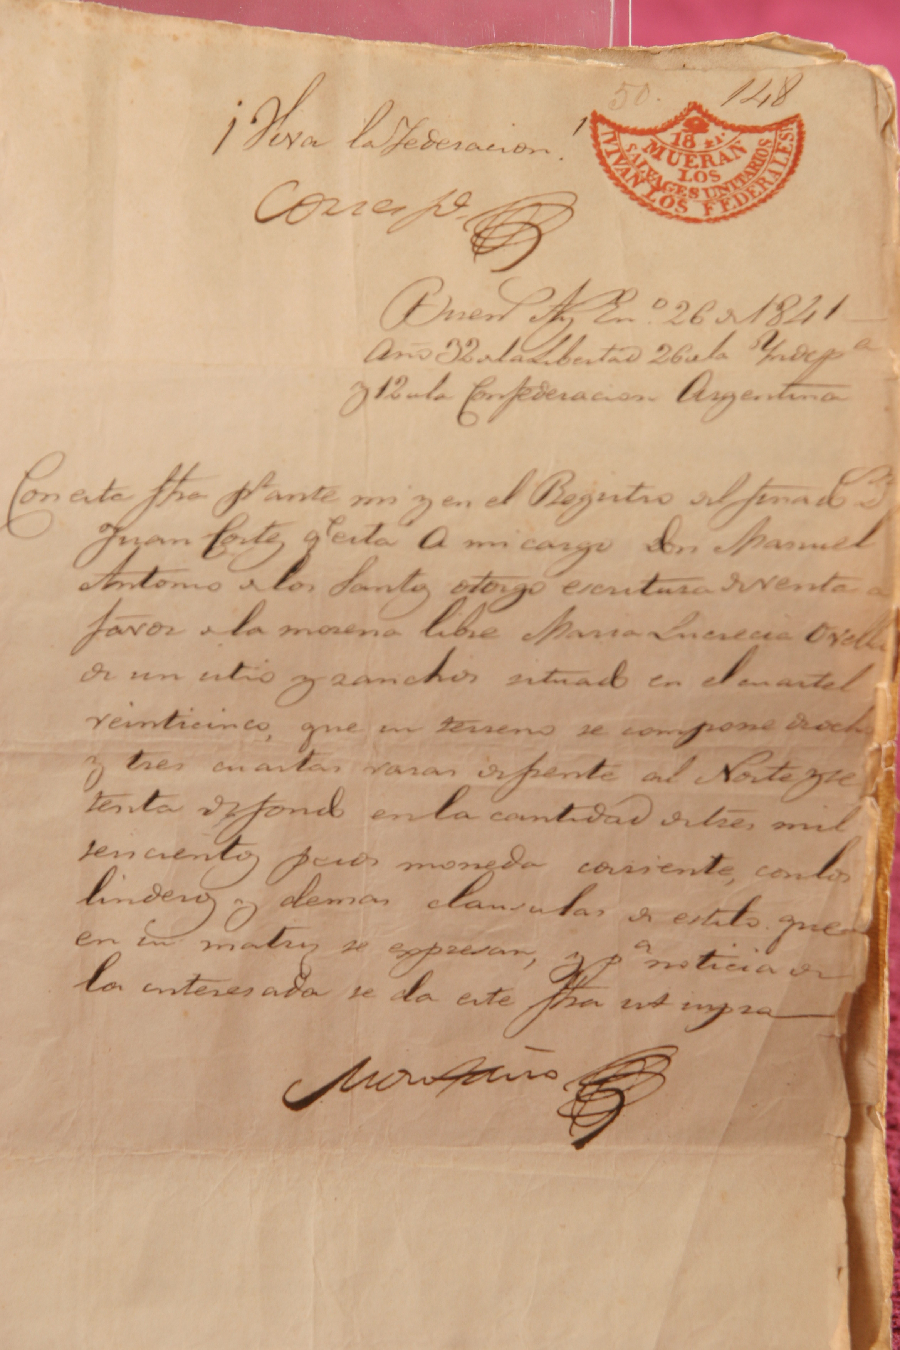 50. 148
¡Viva la Federacion!
18 41
MUERAN
LOS
SALVAGES UNITARIOS
VIVAN LOS FEDERALES
Corresp.de
Buen.s Ay.s En.o 26 de 1841
Año 32 de la Libertad 26 de la Yndep.a
y 12 de la Confederacion Argentina
Con esta fha p.r ante mi y en el Registro del finado D.n
Juan Cortes q.e esta a mi cargo Don Manuel
Antonio de los Santos otorgo escritura de venta a
favor de la morena libre Maria Lucrecia
de un sitio y ranchos situado en el cuartel
veinticinco, que su terreno se compone de ocho
y tres cuartas varas de frente al Norte y se
tenta de fondo en la cantidad de tres mil
seiscientos pesos moneda corriente, con los
linderos y demas clausulas de estilo que
en su matriz se expresan, y p.a noticia de
la interesada se da este fha ut supra